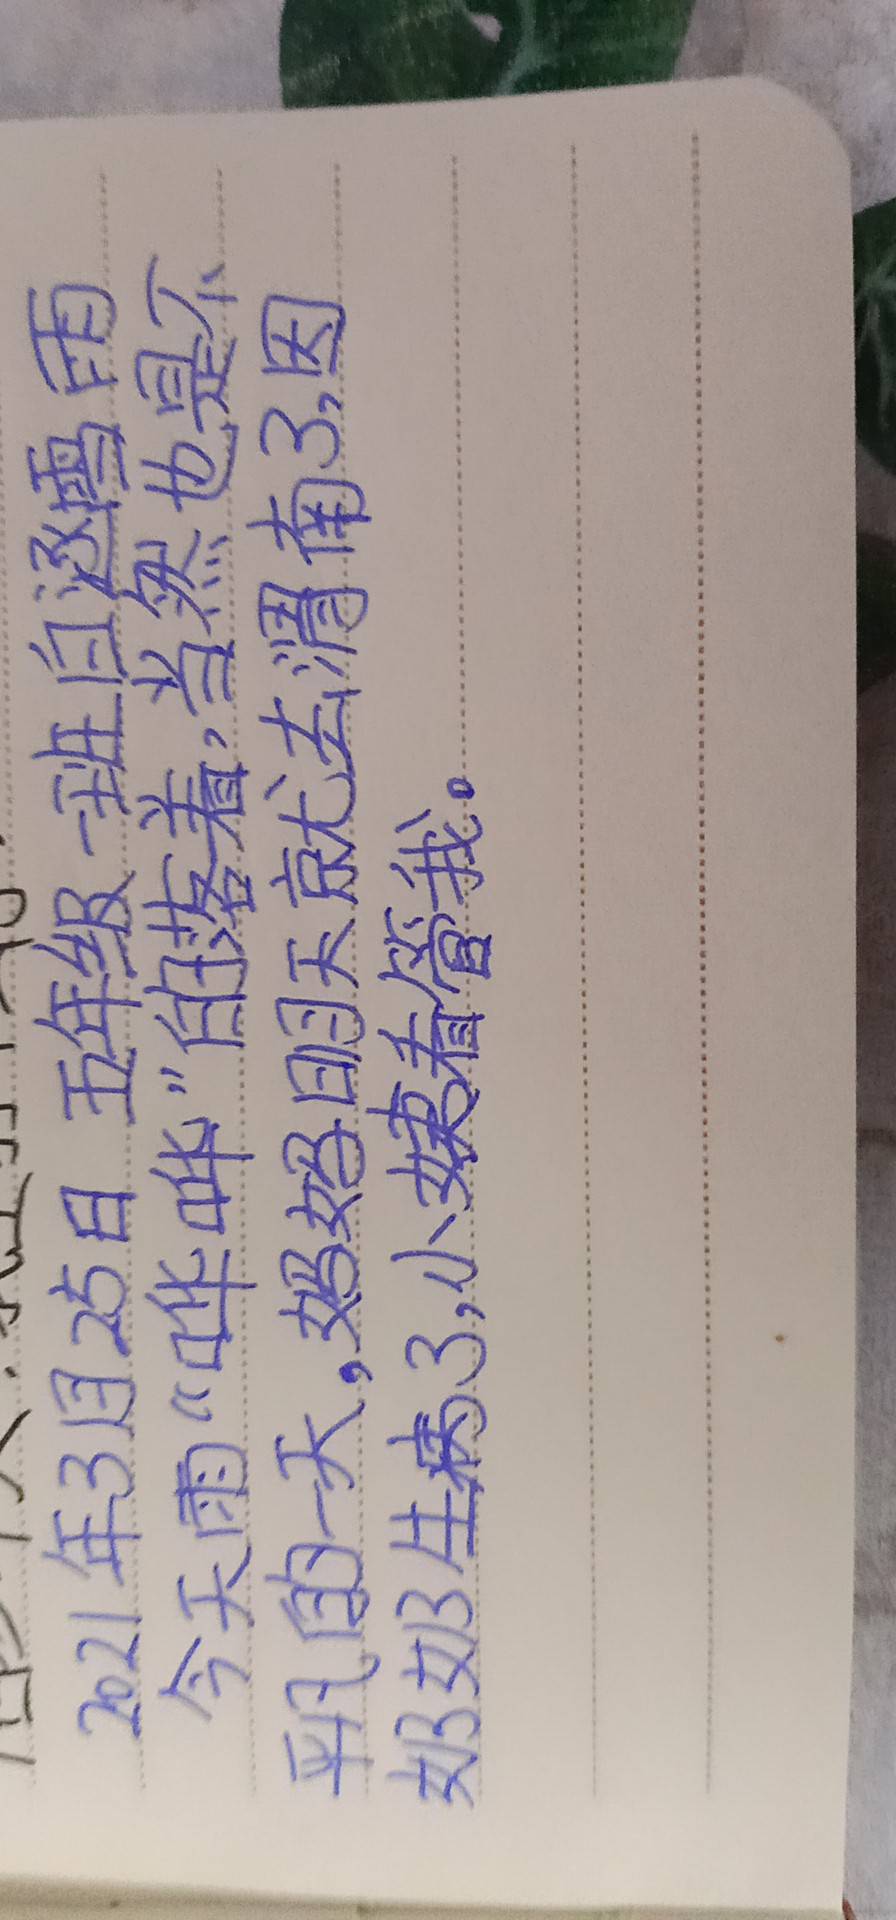 2021年3月25日 五年级一班白逐雪雨
今天雨“哗哗”的落着，当然也是不
平凡的一天，妈妈明天就去渭南了，因
奶奶生病了，小姨看管我。